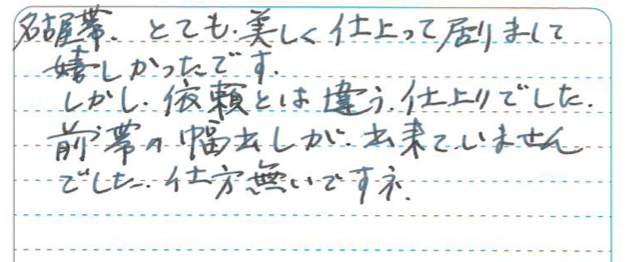 名古屋帯.とても.美しく仕上って居りまして
嬉しかったです.
しかし.依頼とは違う.仕上りでした.
前帯の幅出しが.出来ていません
でした.仕方無いですネ.